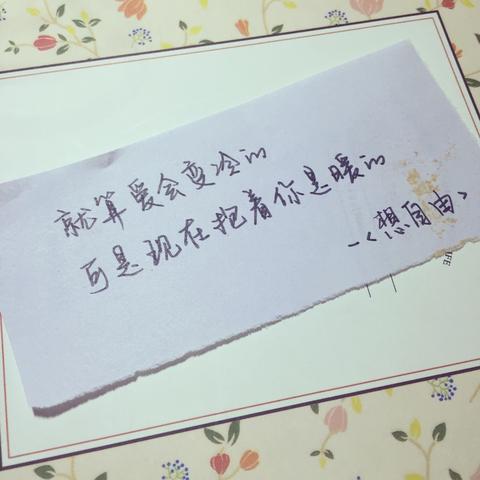 就算爱会变冷的
可是现在抱着你是暖的
—<想自由>